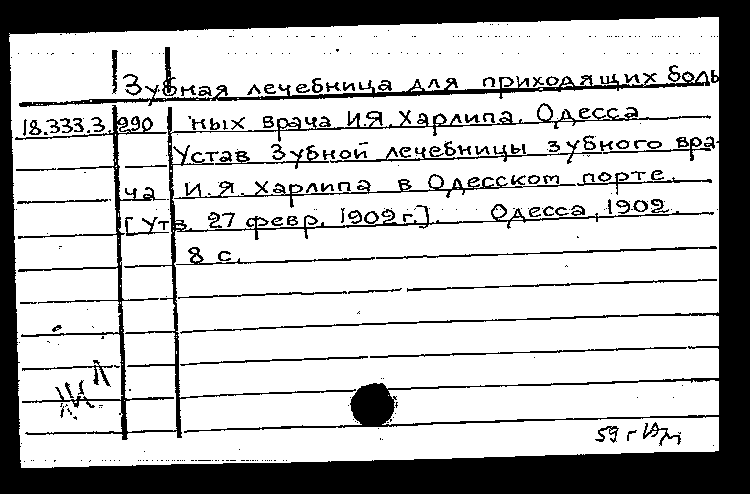 Зубная лечебница для приходящих боль
18.333.3.290 ных врача И.Я. Харлипа. Одесса.
Устав Зубной лечебницы зубного вра-
ча И.Я. Харлипа в Одесском порте.
[Утв. 27 февр. 1902 г.]. Одесса, 1902.
8 с.
59 г